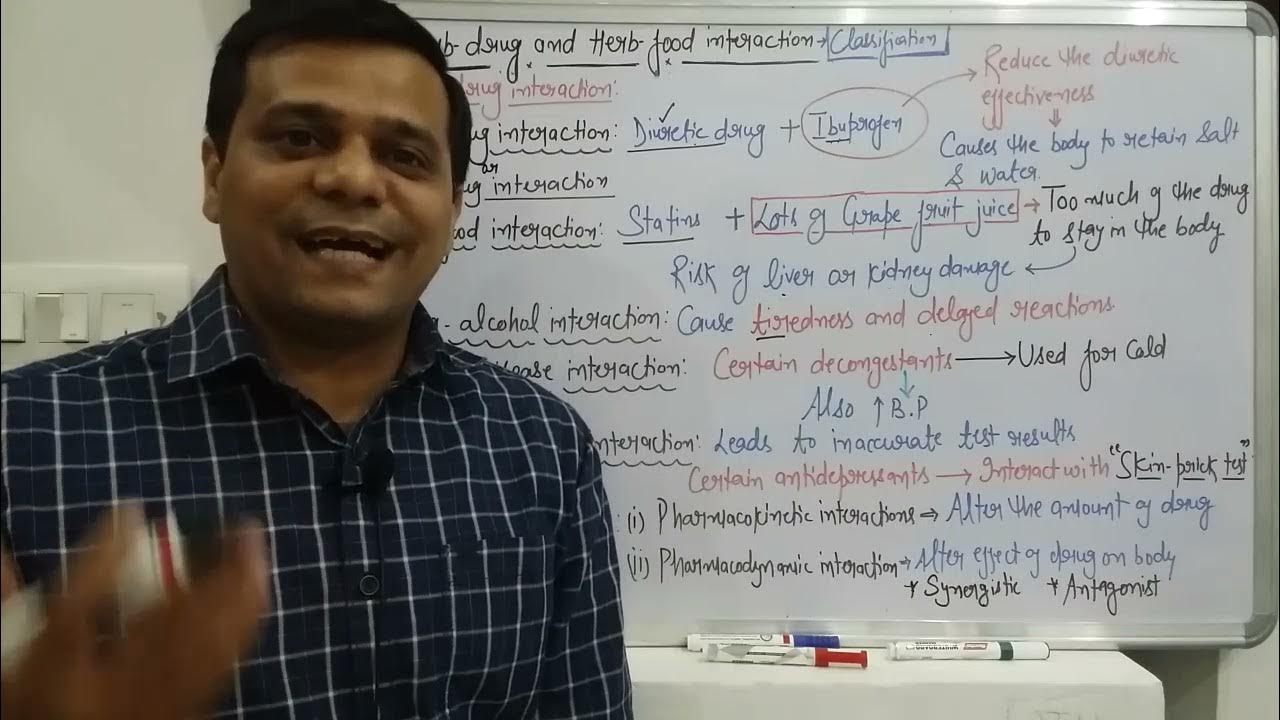 b-drug and Herb-food interaction → Classification
drug interaction:
ug interaction: Diuretic drug + Ibuprofen
Reduce the diuretic
effectiveness
Causes the body to retain salt
& water.
or
ug interaction
ood interaction: Statins + Lots of Grape fruit juice → Too much of the drug
to stay in the body
Risk of liver or kidney damage
- alcohol interaction: Cause tiredness and delayed reactions.
ease interaction: Certain decongestants → Used for cold
Also ↑ B.P
interaction: Leads to inaccurate test results
Certain antidepressants → Interact with "Skin-prick test"
: (i) Pharmacokinetic interactions ⇒ Alter the amount of drug
(ii) Pharmacodynamic interaction → Alter effect of drug on body
* Synergistic * Antagonist